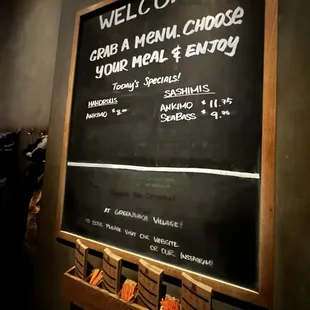 WELCO
GRAB A MENU. CHOOSE
YOUR MEAL & ENJOY
Today's Specials!
HANDROLLS
ANKIMO $8.00
SASHIMIS
ANKIMO $11.75
SEABASS $9.75
AT GREENWICH VILLAGE!
PLEASE VISIT OUR WEBSITE
OR OUR INSTAGRAM!